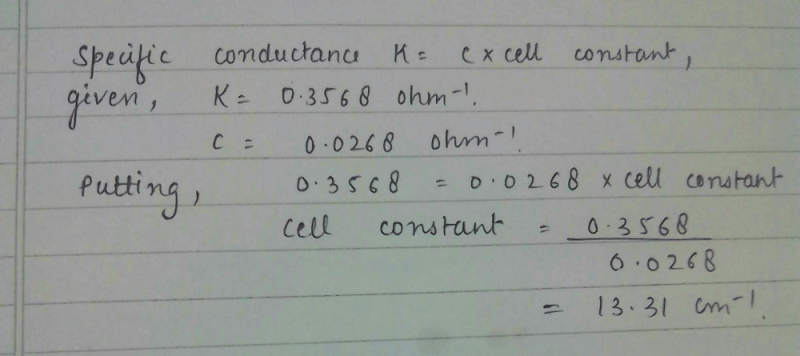 Specific conductance K = C x cell constant,
given, K = 0.3568 ohm⁻¹.
C = 0.0268 ohm⁻¹.
Putting, 0.3568 = 0.0268 x cell constant
Cell constant = 0.3568
0.0268
= 13.31 cm⁻¹.